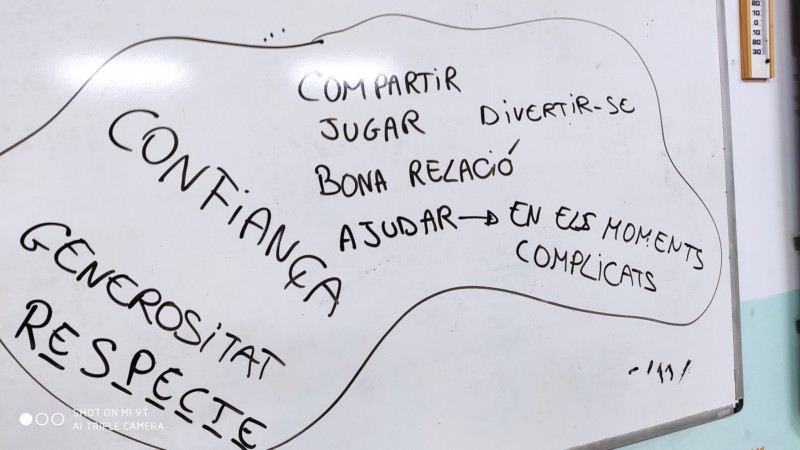 COMPARTIR
JUGAR DIVERTIR-SE
BONA RELACIÓ
AJUDAR → EN ELS MOMENTS
COMPLICATS
CONFIANÇA
GENEROSITAT
RESPECTE
SHOT ON MI 9T
AI TRIPLE CAMERA